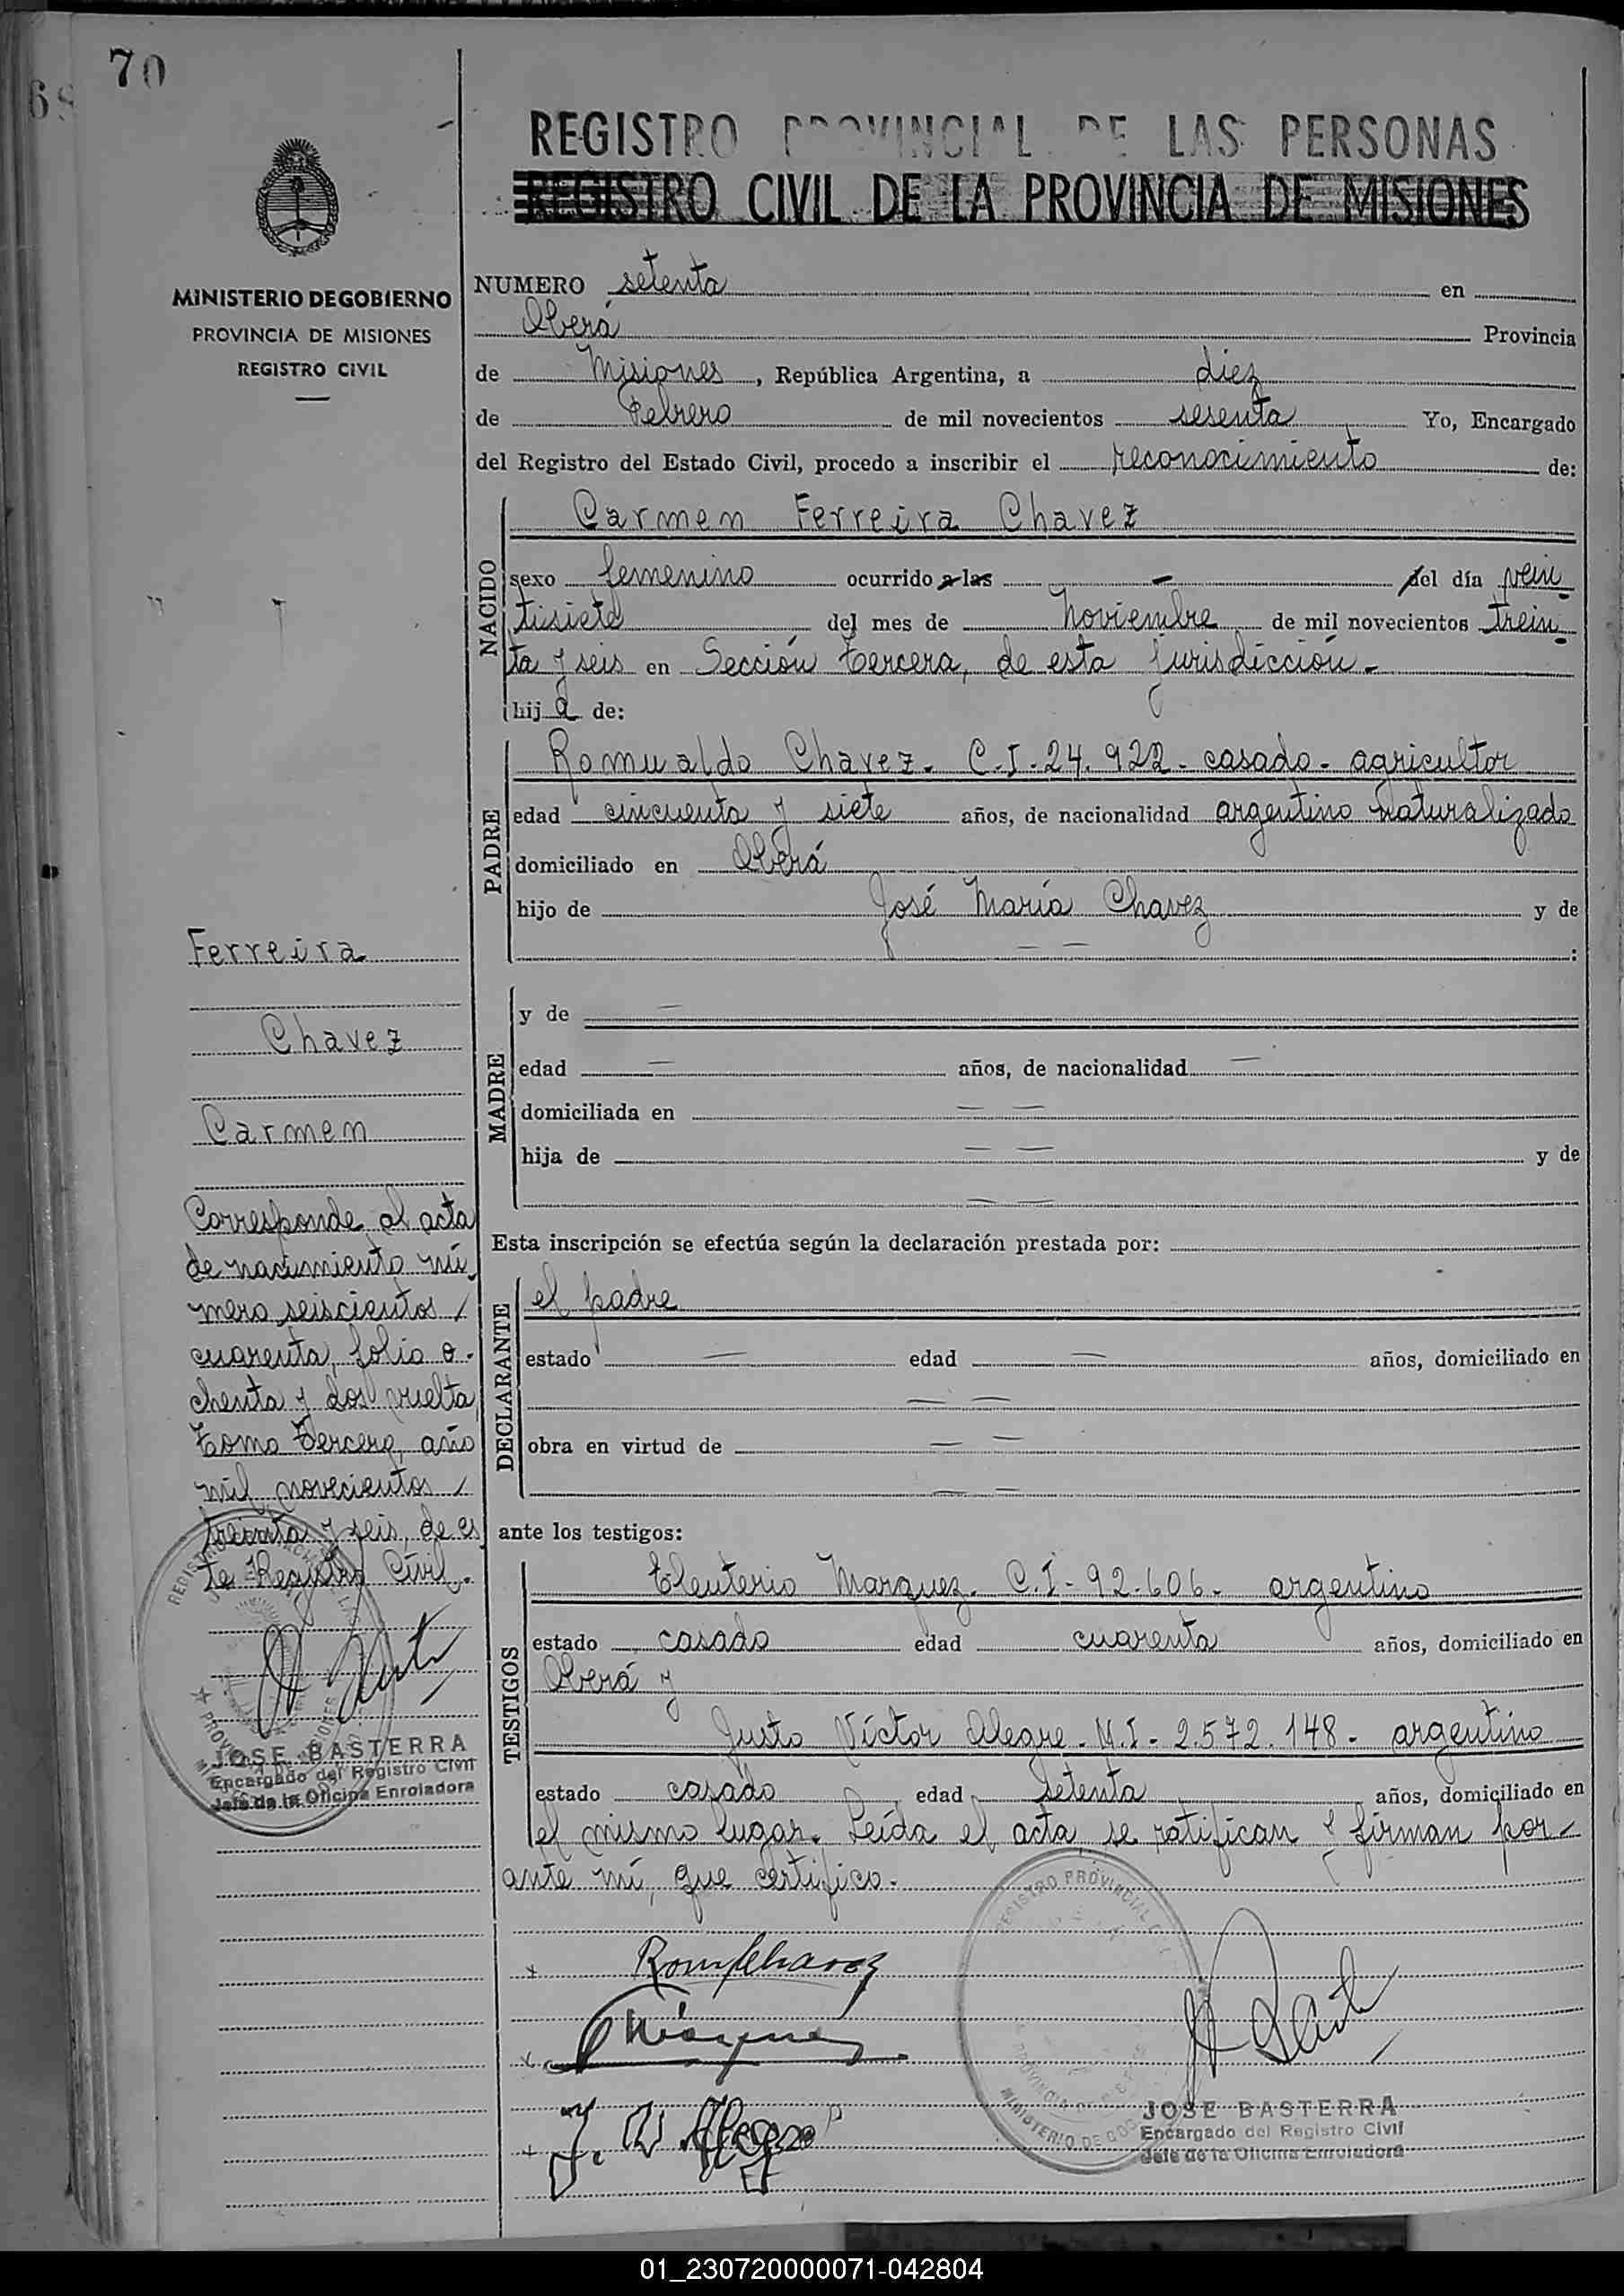 70
69
REGISTRO PROVINCIAL DE LAS PERSONAS
REGISTRO CIVIL DE LA PROVINCIA DE MISIONES
MINISTERIO DE GOBIERNO
PROVINCIA DE MISIONES
REGISTRO CIVIL
NUMERO setenta en
Oberá Provincia
de Misiones, República Argentina, a diez
de Febrero de mil novecientos sesenta Yo, Encargado
del Registro del Estado Civil, procedo a inscribir el reconocimiento de:
NACIDO
Carmen Ferreira Chavez
sexo femenino ocurrido a las - del día vein
tisiete del mes de Noviembre de mil novecientos trein
ta y seis en Sección tercera, de esta jurisdicción.-
hija de:
PADRE
Romualdo Chavez. C.I.24.922- casado- agricultor
edad cincuenta y siete años, de nacionalidad argentino naturalizado
domiciliado en Oberá
hijo de José María Chavez y de
— — :
MADRE
y de —
edad — años, de nacionalidad —
domiciliada en — —
hija de — — y de
— —
Esta inscripción se efectúa según la declaración prestada por:
DECLARANTE
el padre
estado — edad — años, domiciliado en
— —
obra en virtud de — —
— —
ante los testigos:
TESTIGOS
Eleuterio Marquez. C.I-92.606- argentino
estado casado edad cuarenta años, domiciliado en
Oberá y
Justo Víctor Alegre-M.I-2.572.148- argentino
estado casado edad setenta años, domiciliado en
el mismo lugar. Leída el acta se ratifican y firman por-
ante mí, que certifico.-
Ferreira
Chavez
Carmen
Corresponde al acta
de nacimiento nú
mero seiscientos /
cuarenta, folio o-
chenta y dos vuelta
tomo tercero, año
mil novecientos /
treinta y seis, de es
te Registro Civil.
JOSE BASTERRA
Encargado del Registro Civil
Jefe de la Oficina Enroladora
x Rom Chavez
x Márquez
+ J. V. Alegre
REGISTRO PROVINCIAL
MINISTERIO DE GOB
JOSE BASTERRA
Encargado del Registro Civil
Jefe de la Oficina Enroladora
01_230720000071-042804